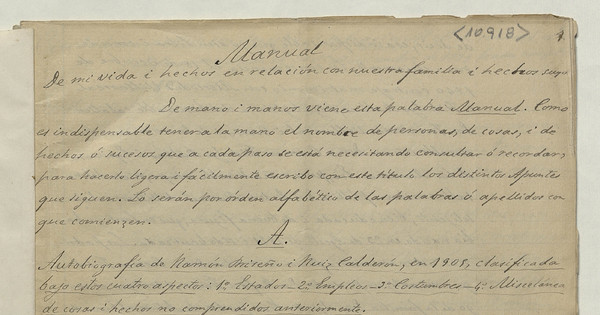 <10918>
1
Manual
De mi vida i hechos en relación con nuestra familia i hechos suyos
De mano i manos viene esta palabra Manual. Como
es indispensable tener a la mano el nombre de personas, de cosas, i de
hechos ó sucesos que a cada paso se está necesitando consultar ó recordar,
para hacerlo ligera i fácilmente escribo con este título los distintos Apuntes
que siguen. Lo serán por órden alfabético de las palabras ó apellidos con
que comienzen.
A.
Autobiografía de Ramón Briseño i Ruiz Calderón, en 1905, clasificada
bajo estos cuatro aspectos: 1º Estados-2º Empleos-3º Costumbres-4º Miscelánea
de cosas i hechos no comprendidos anteriormente.